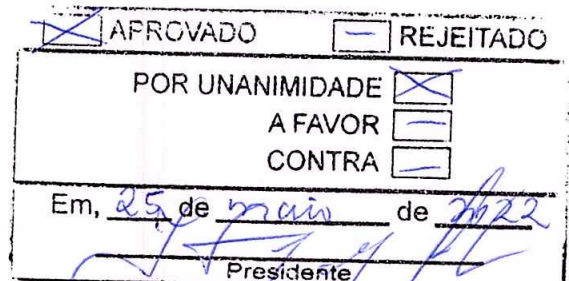 APROVADO — REJEITADO
POR UNANIMIDADE X
A FAVOR —
CONTRA —
Em, 25 de maio de 2022
Presidente